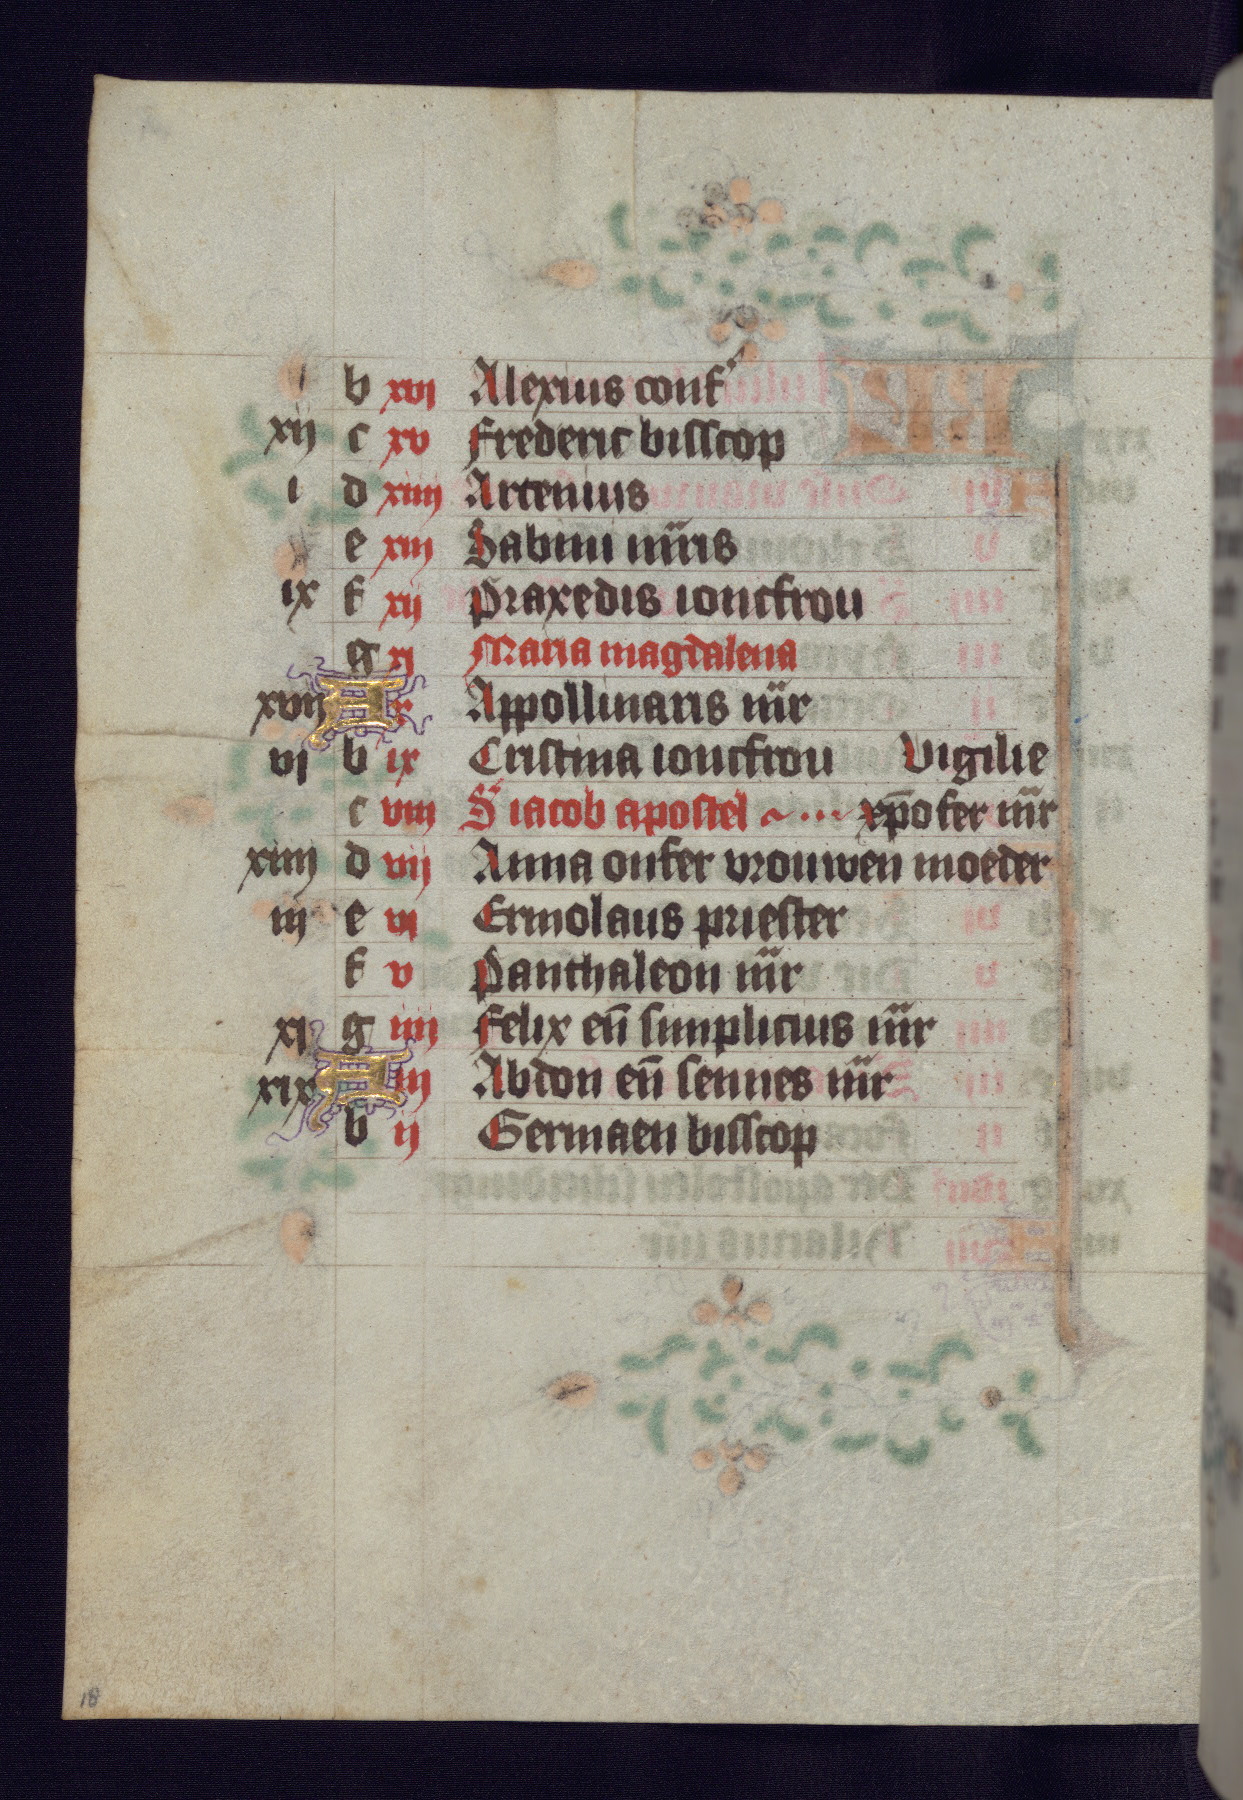 b xvi Alexius conf'
xii c xv Frederic bisscop
i d xiiii Artenius
e xiii Sabini mr̄is
ix f xii Praxedis ioncfrou
g xi Maria magdalena
xvii A x Appollinaris mr̄
vi b ix Cristina ioncfrou Vigilie
c viii S' iacob apostel ~ ... xp̄ofer mr̄
xiiii d vii Anna onser vrouwen moeder
iii e vi Ermolaus priester
f v Panthaleon mr̄
xi g iiii Felix en̄ simplicius mr̄
xix A iii Abdon en̄ sennes mr̄
b ii Germaen bisscop
18